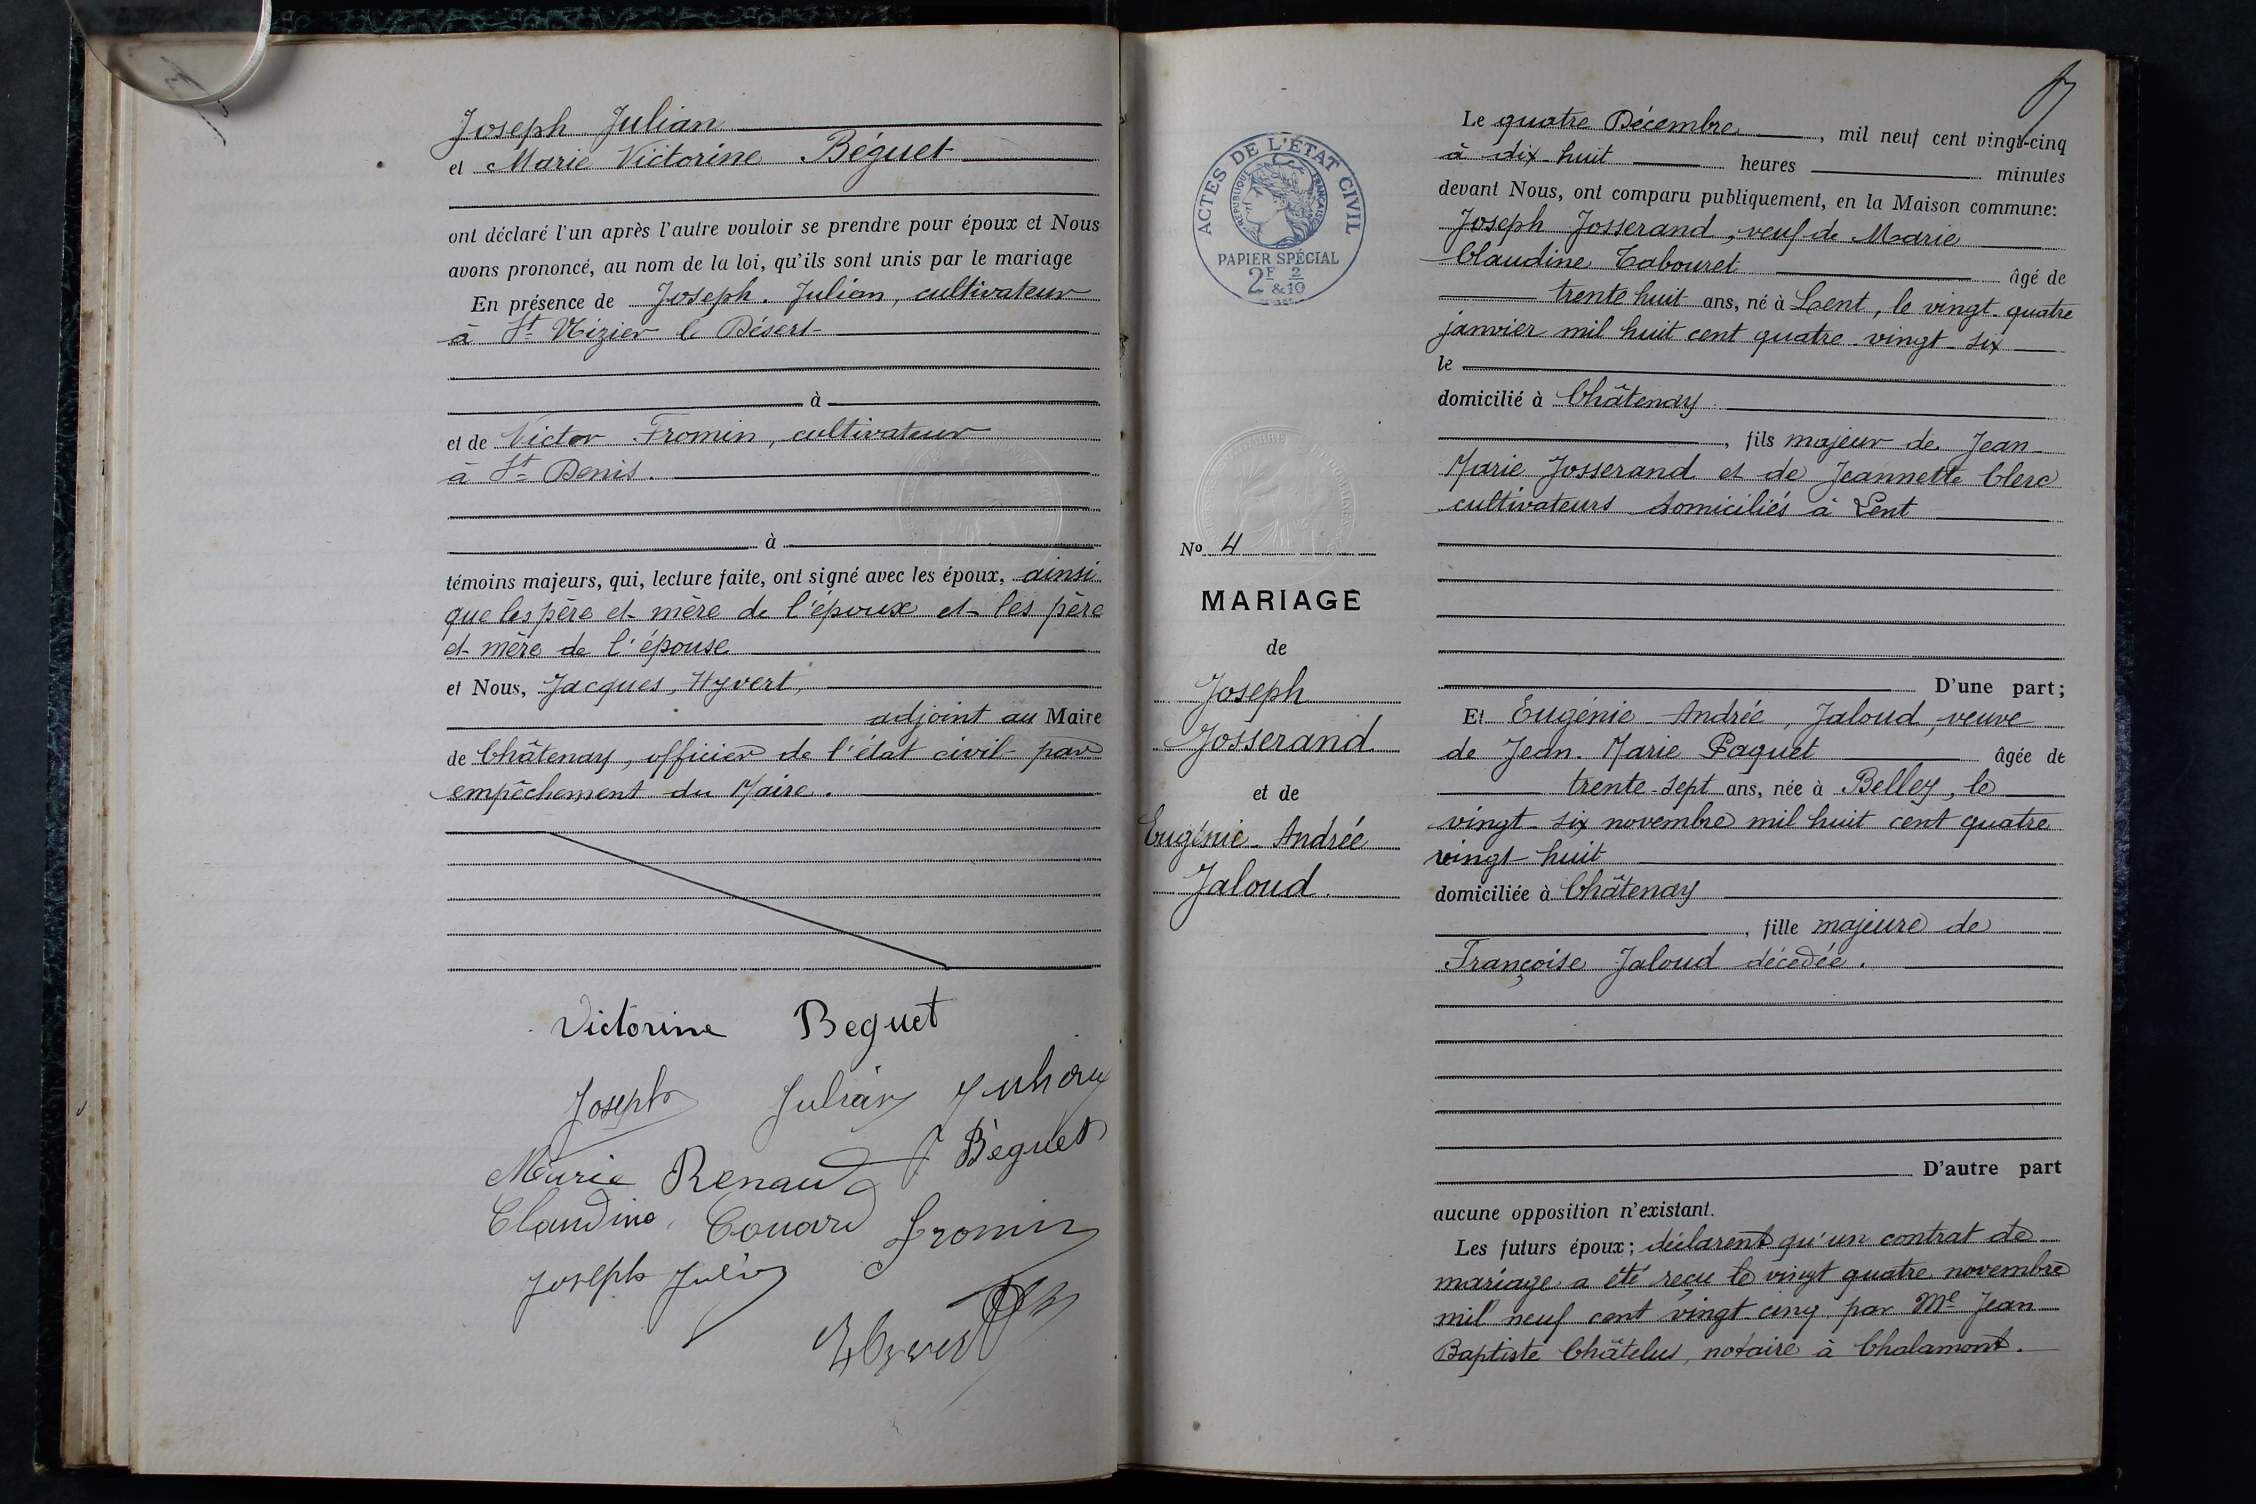 Joseph Julian
et Marie Victorine Béguet
ont déclaré l'un après l'autre vouloir se prendre pour époux et Nous
avons prononcé, au nom de la loi, qu'ils sont unis par le mariage
En présence de Joseph Julian, cultivateur
à St Nizier le Désert
à
et de Victor Fromin, cultivateur
à St Denis.
à
témoins majeurs, qui, lecture faite, ont signé avec les époux, ainsi
que les père et mère de l'époux et les père
et mère de l'épouse
et Nous, Jacques, Hyvert,
adjoint au Maire
de Châtenay, officier de l'état civil par
empêchement du Maire.
Victorine Beguet
Joseph Julian Julian
Marie Renaud J Béguet
Claudine Couard Fromin
Joseph Julian
Hyvert
ACTES DE L'ÉTAT CIVIL
RÉPUBLIQUE FRANÇAISE
PAPIER SPÉCIAL
2F & 2/10
No 4
MARIAGE
de
Joseph
Josserand
et de
Eugénie Andrée
Jaloud.
Le quatre Décembre, mil neuf cent vingt-cinq
à dix-huit heures minutes
devant Nous, ont comparu publiquement, en la Maison commune:
Joseph Josserand, veuf de Marie
Claudine Tabouret âgé de
trente huit ans, né à Lent, le vingt-quatre
janvier mil huit cent quatre-vingt-six
le
domicilié à Châtenay
, fils majeur de Jean
Marie Josserand et de Jeannette Clerc
cultivateurs domiciliés à Lent
D'une part;
Et Eugénie Andrée, Jaloud, veuve
de Jean-Marie Paquet âgée de
trente-sept ans, née à Belley, le
vingt-six novembre mil huit cent quatre
vingt-huit
domiciliée à Châtenay
, fille majeure de
Françoise Jaloud décédée.
D'autre part
aucune opposition n'existant.
Les futurs époux; déclarent qu'un contrat de
mariage a été reçu le vingt quatre novembre
mil neuf cent vingt-cinq par Me Jean
Baptiste Châtelus, notaire à Chalamont.